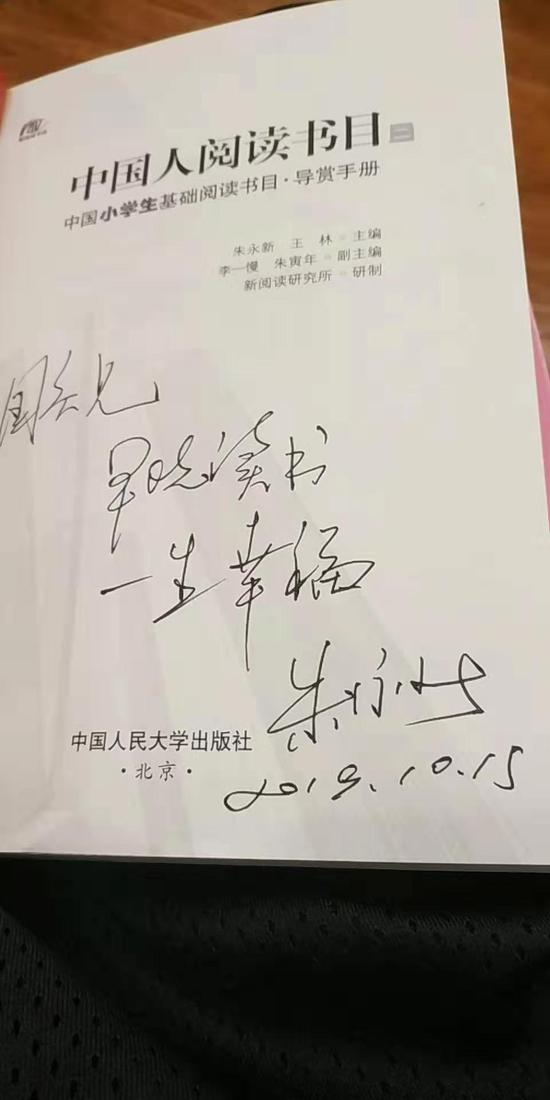 中国人阅读书目 二
中国小学生基础阅读书目·导赏手册
朱永新 王 林 主编
李一慢 朱寅年 副主编
新阅读研究所 研制
兄
早晚读书
一生幸福
朱永新
中国人民大学出版社
·北京·
2019.10.15